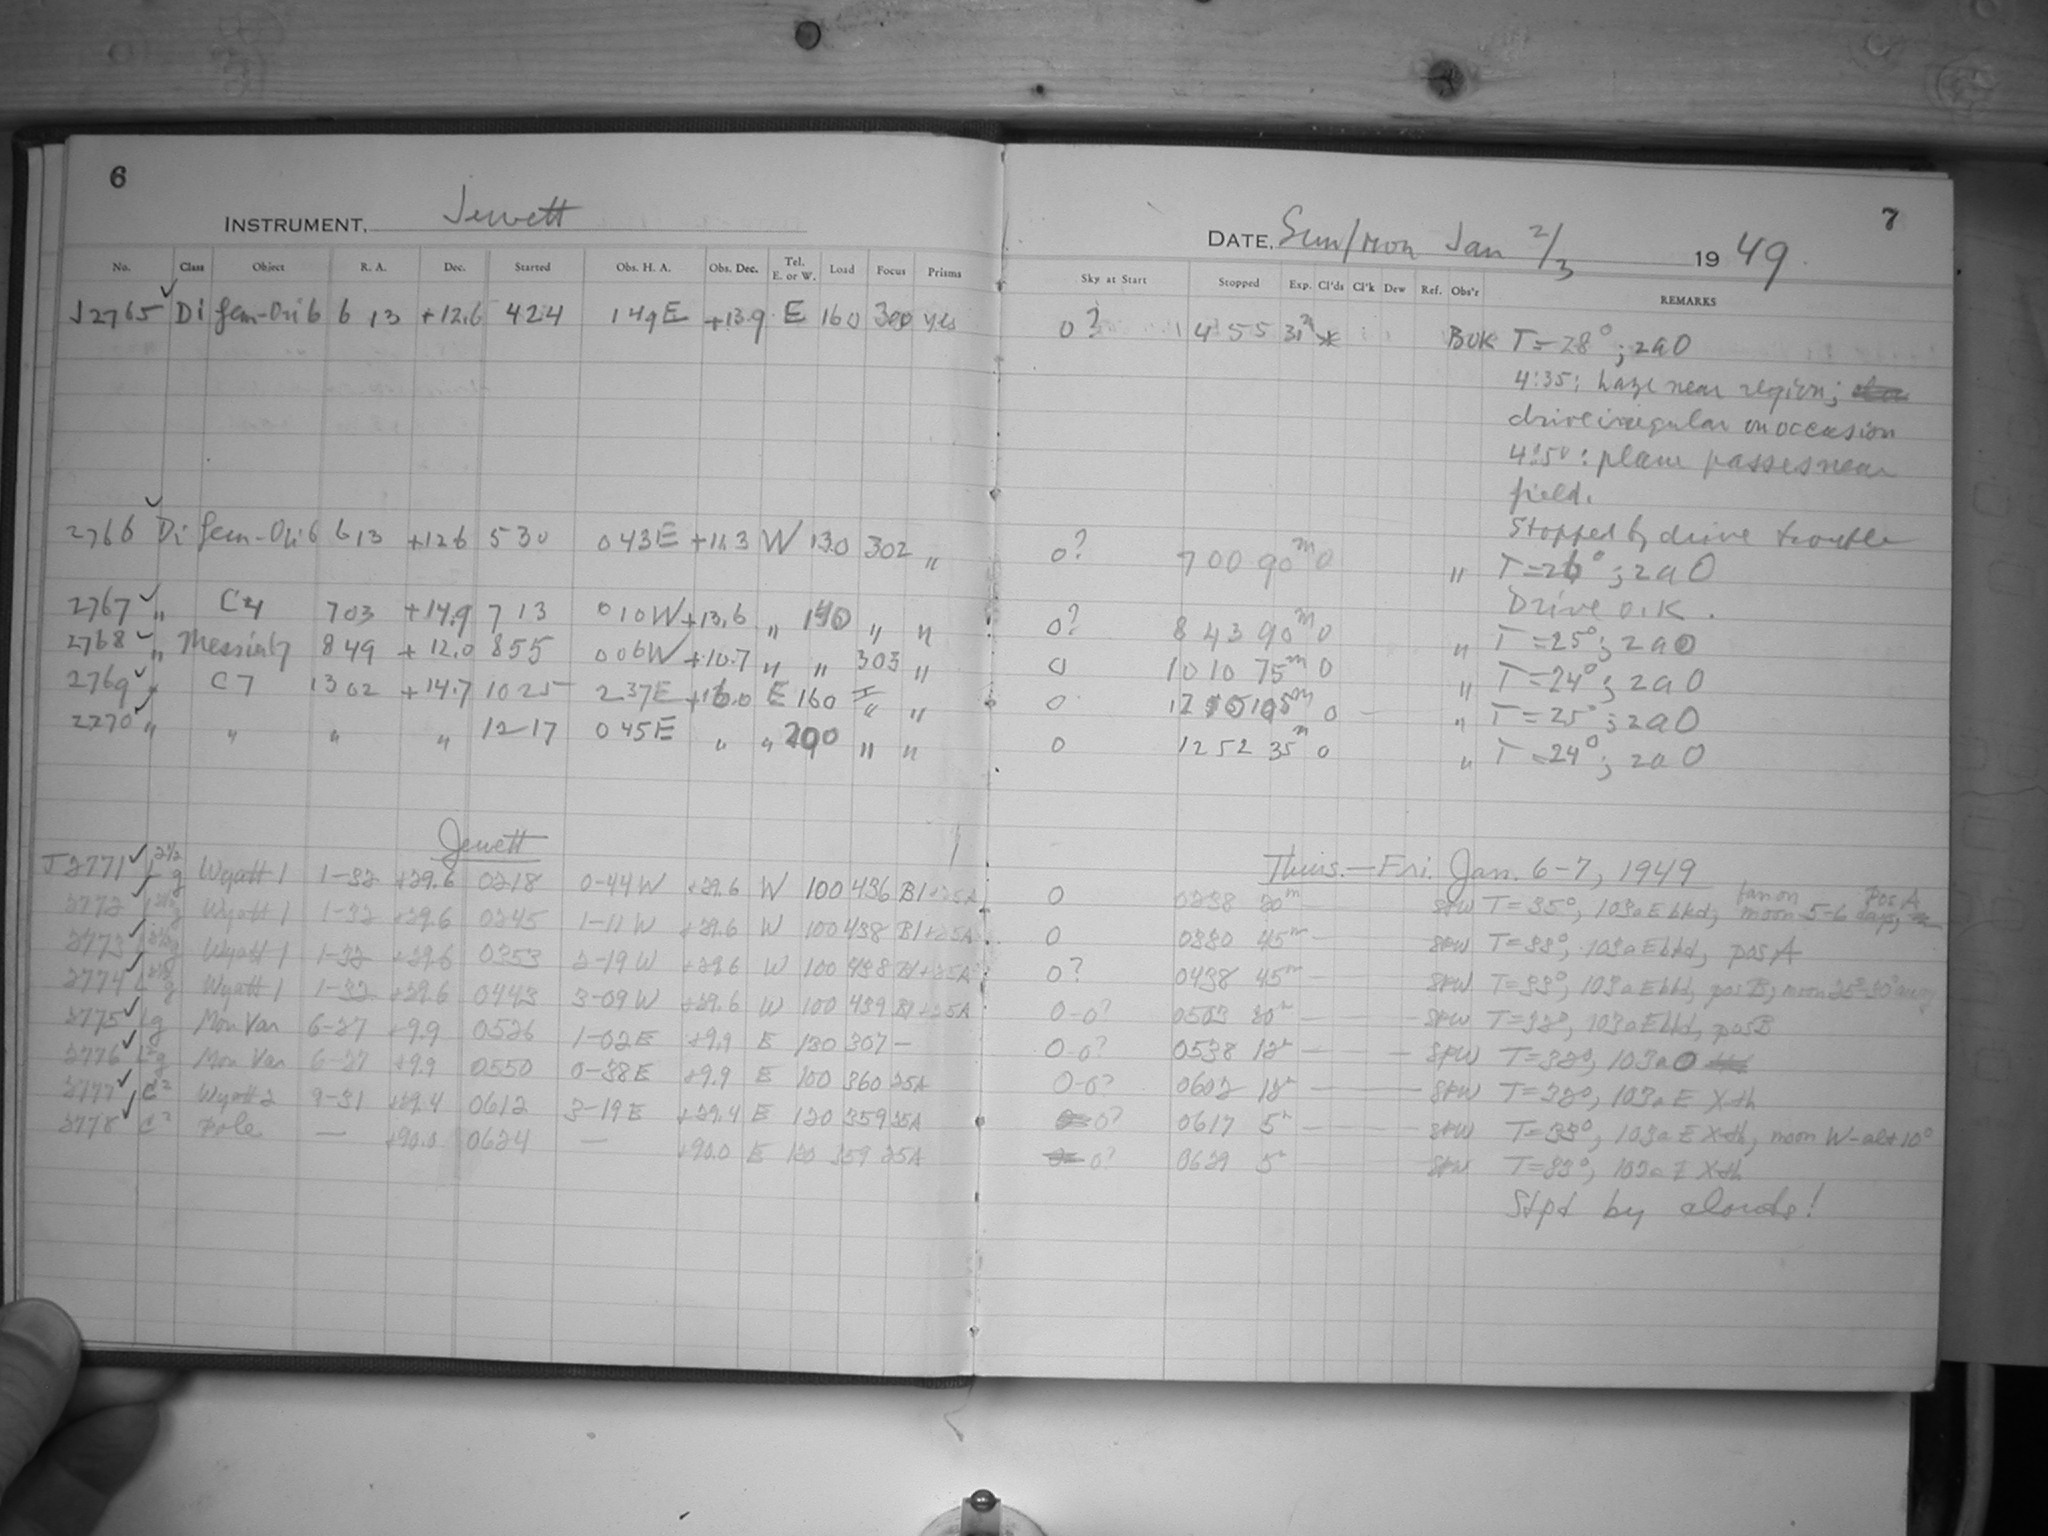 6
INSTRUMENT, Jewett
No. Class Object R. A. Dec. Started Obs. H. A. Obs. Dec. Tel. E. or W. Load Focus Prisms
J2765 ✓ Di Gem-Ori 6 6 13 +12.6 424 149E +13.9 E 160 300 yes
2766 ✓ Di Gem-Ori 6 6 13 +12.6 5 30 043E +11.3 W 130 302 "
2767 ✓ " C4 7 03 +14.9 7 13 010W +13.6 " 190 " "
2768 ✓ " 8 49 +12.0 855 006W +10.7 " " 303 "
2769 ✓ " C7 13 02 +14.7 10 25 237E +16.0 E 160 " "
2270 ✓ " " " " 12 17 045E " " 200 " "
Jewett
J2771 ✓ Wyatt 1 1-32 +29.6 0218 0-44W +29.6 W 100 436 B1+25A
2772 ✓ Wyatt 1 1-32 +29.6 0245 1-11W +29.6 W 100 438 B1+25A
2773 ✓ Wyatt 1 1-32 +29.6 0353 2-19W +29.6 W 100 438 B1+25A
2774 ✓ Wyatt 1 1-32 +29.6 0443 3-09W +29.6 W 100 439 B1+25A
2775 ✓ Mon Var 6-27 +9.9 0526 1-02E +9.9 E 130 307 —
2776 ✓ Mon Var 6-27 +9.9 0550 0-38E +9.9 E 100 360 25A
2777 ✓ C² Wyatt 2 9-31 +29.4 0612 3-19E +29.4 E 120 359 25A
2778 ✓ C² Pole — +90.0 0624 — +90.0 E 120 359 25A
7
DATE, Sun/Mon Jan 2/3 1949
Sky at Start Stopped Exp. Cl'ds Cl'k Dew Ref. Obs'r REMARKS
0? 4 55 31ᵐ * BUK T=28°; 2aO
4:35: haze near region;
drive irregular on occasion
4:50: plane passes near
field.
Stopped by drive trouble
0? 7 00 90ᵐ 0 " T=26°; 2aO
Drive O.K.
0? 8 43 90ᵐ 0 " T=25°; 2aO
0 10 10 75ᵐ 0 " T=24°; 2aO
0 105ᵐ 0 " T=25°; 2aO
0 12 52 35ᵐ 0 " T=24°; 2aO
Thurs.—Fri. Jan. 6-7, 1949
0 0238 20ᵐ SPW T=35°, 103aE bkd, moon 5-6 days, pos A
0 0330 45ᵐ SPW T=33°, 103aE bkd, pos A
0? 0438 45ᵐ SPW T=33°, 103aE bkd, pos B, moon 25°-30° away
0-0? 0503 20ᵐ SPW T=32°, 103aE bkd, pos B
0-0? 0538 12ᵐ SPW T=32°, 103aO
0-0? 0602 12ᵐ SPW T=32°, 103aE X-th
0? 0617 5ᵐ SPW T=33°, 103aE X-th, moon W-alt 10°
0? 0629 5ᵐ SPW T=33°, 103aE X-th
Stpd by clouds!